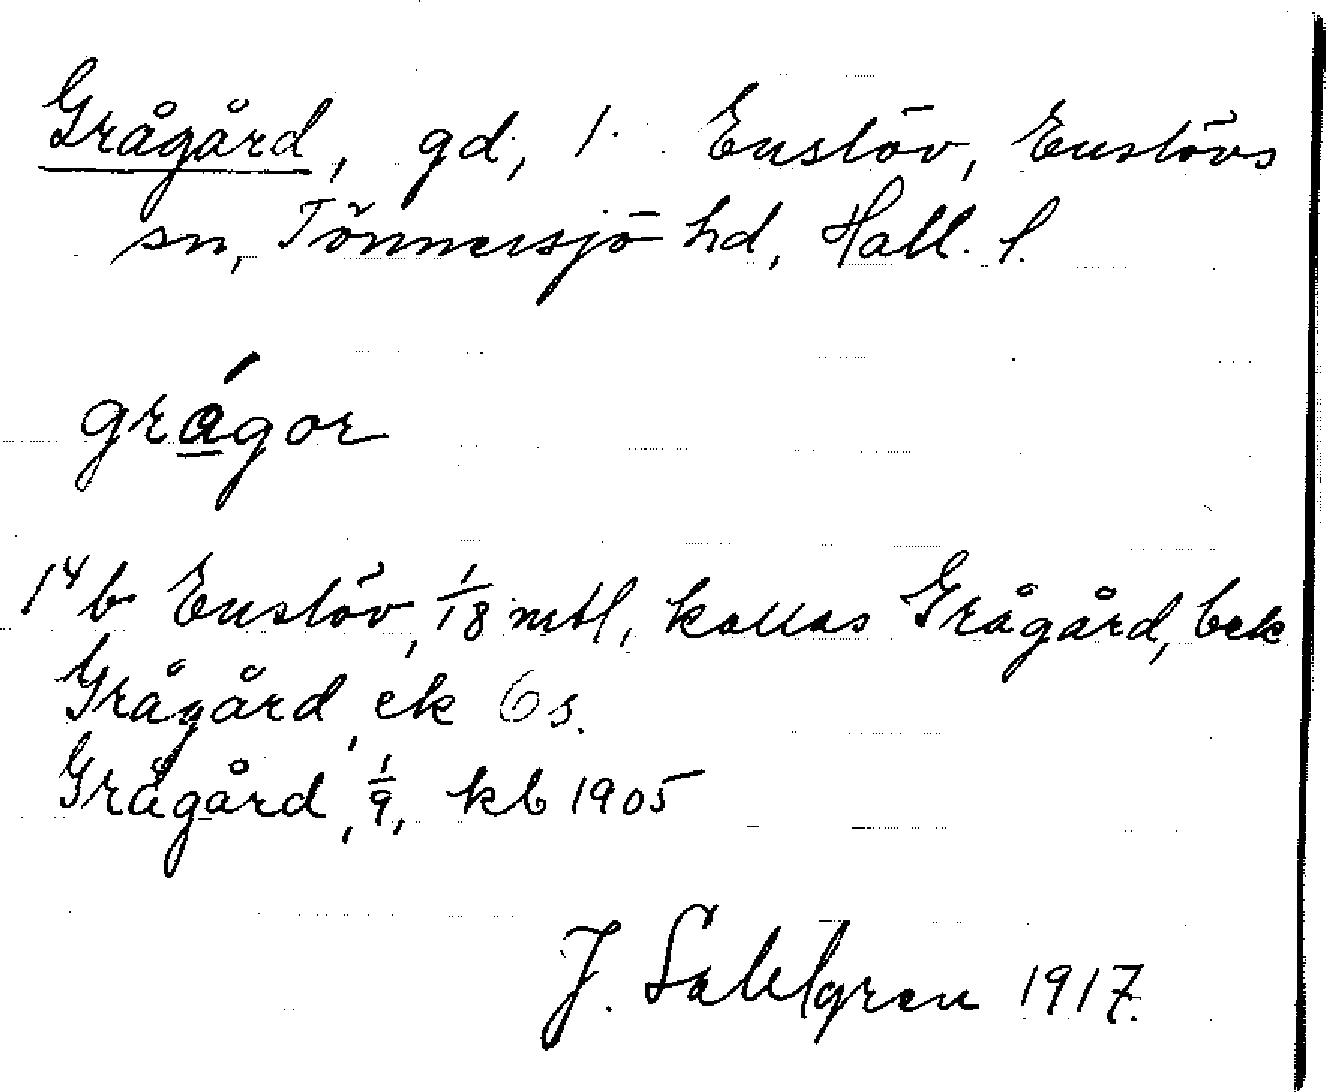 Grågård, gd, 1. Enslöv, Enslövs
sn, Tönnersjö hd, Hall. l.
grágor
1⁴b Enslöv, 1/18 mtl, kallas Grågård, bek
Grågård, ek 6s.
Grågård, 1/9, kb 1905
J. Sahlgren 1917.